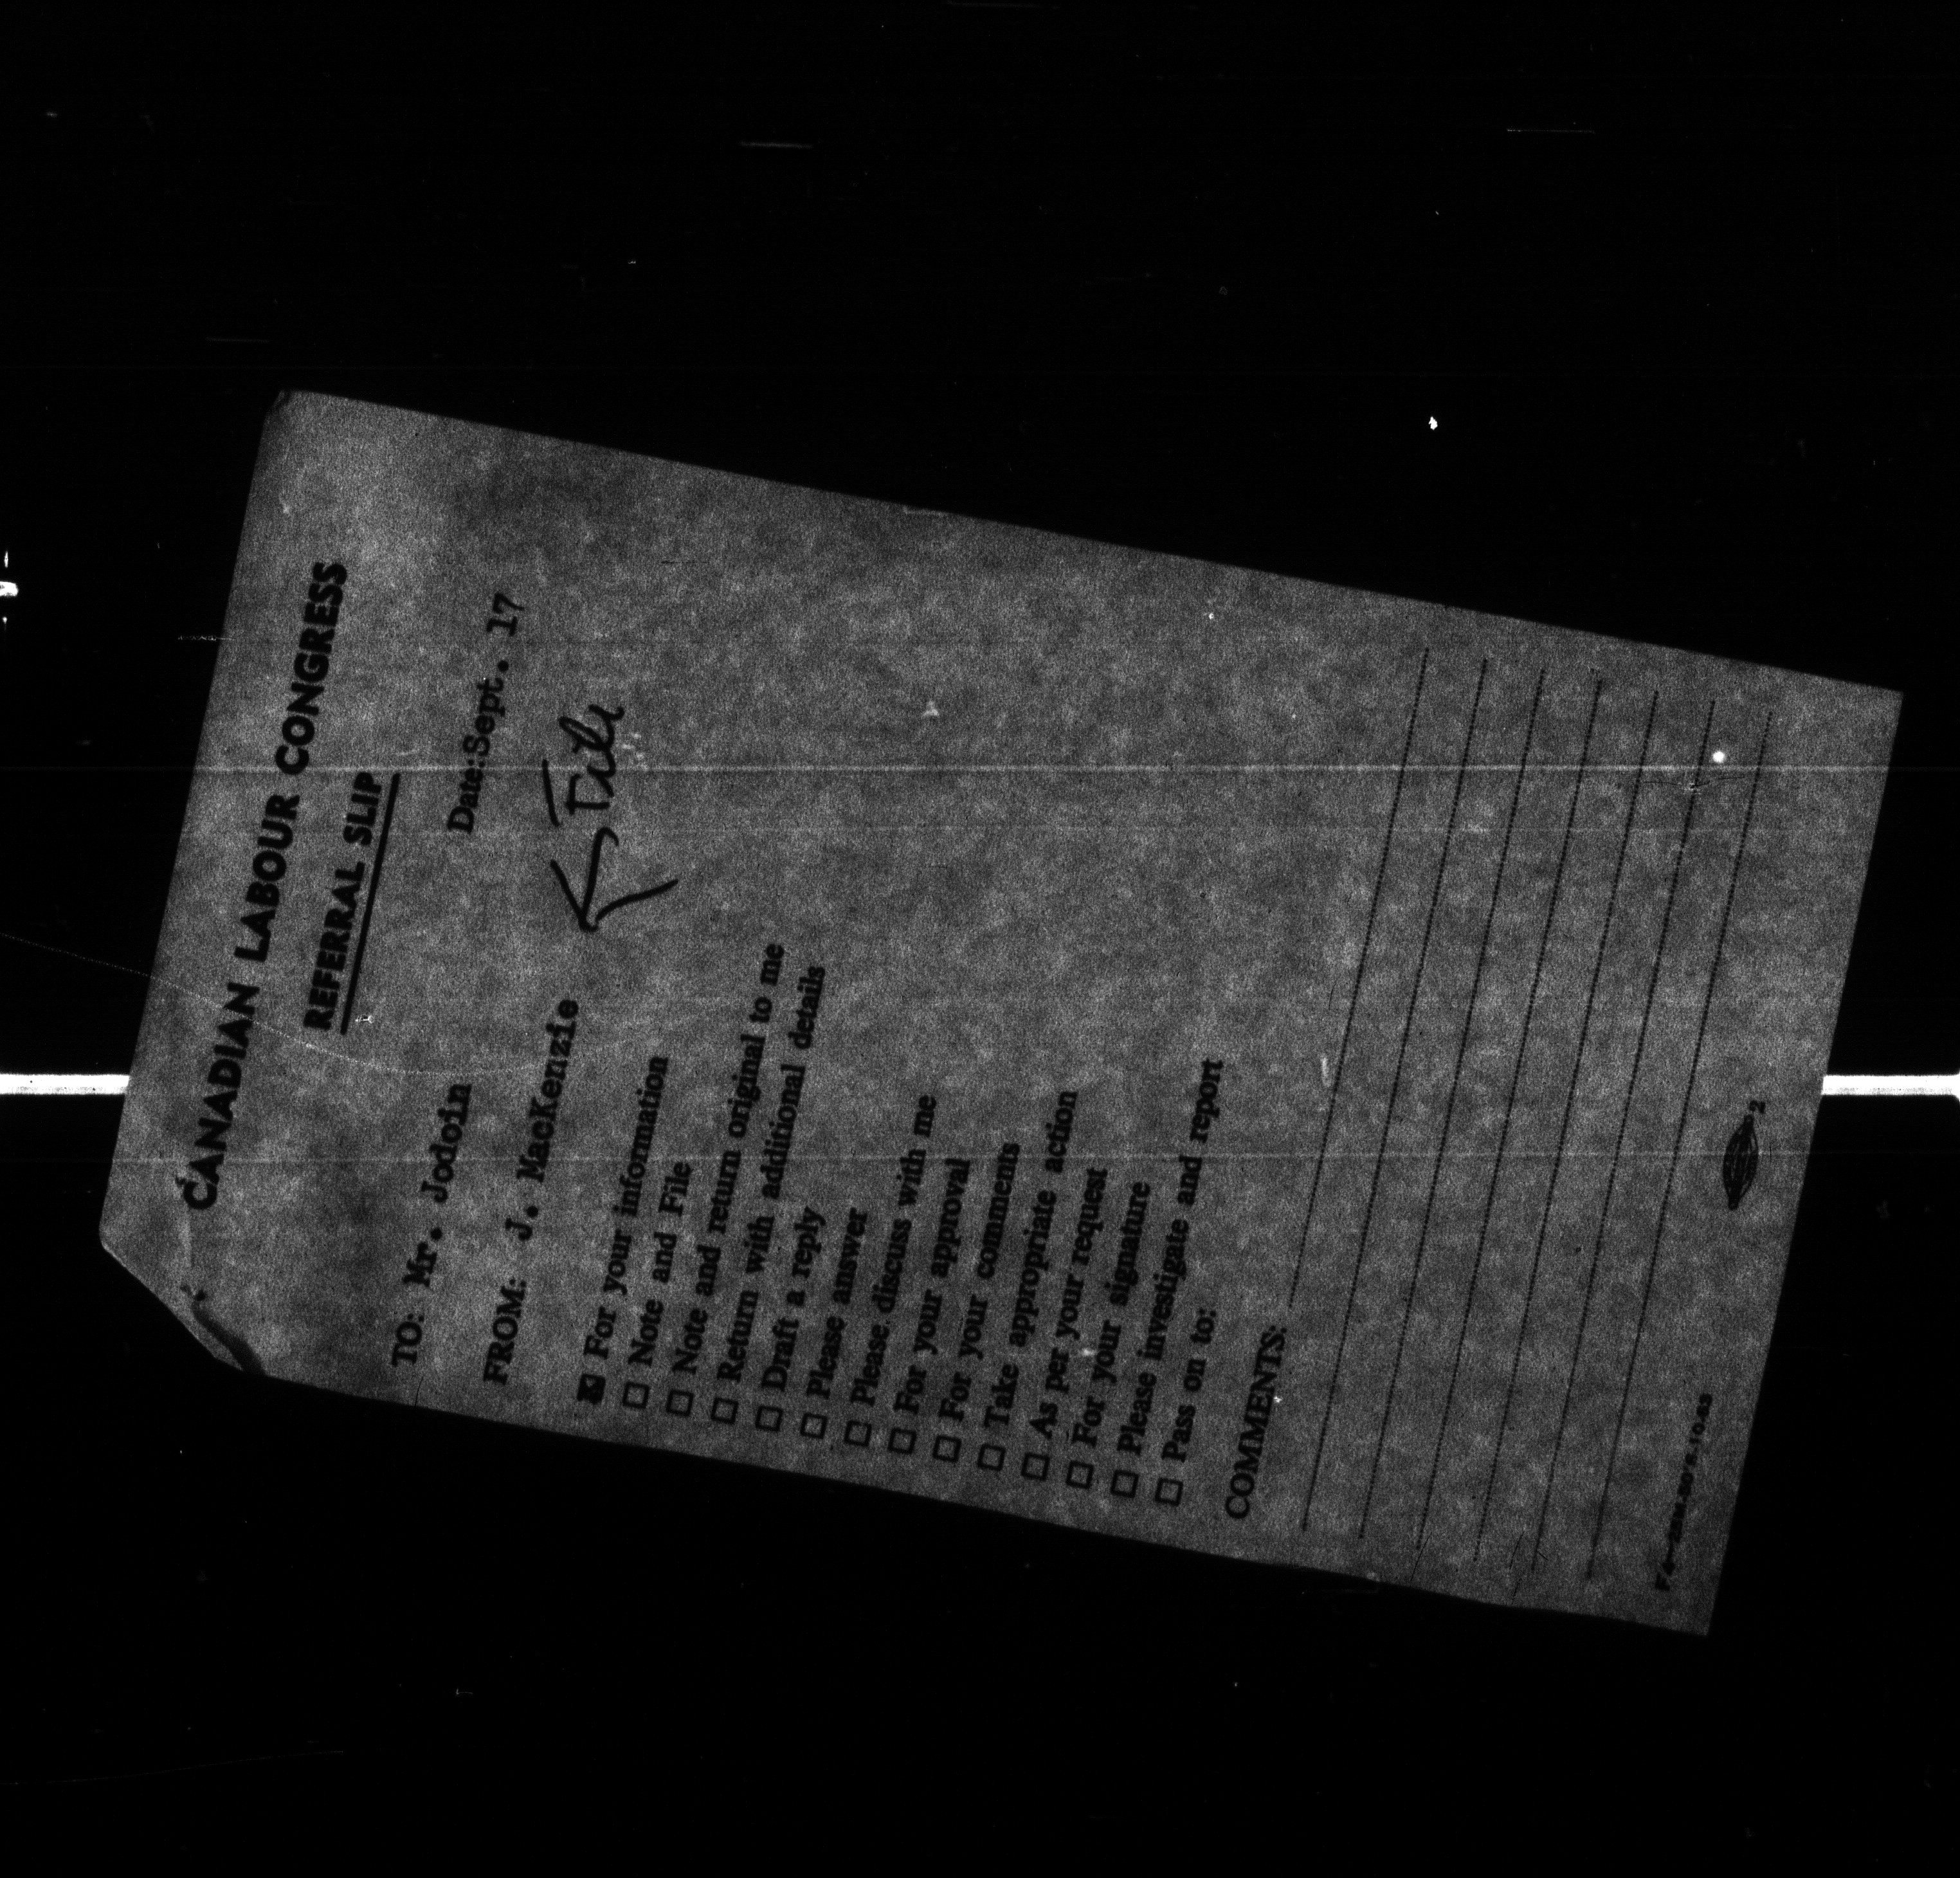 CANADIAN LABOUR CONGRESS
REFERRAL SLIP
Date: Sept. 17
TO: Mr. Jodoin
FROM: J. MacKenzie
File
☒ For your information
☐ Note and File
☐ Note and return original to me
☐ Return with additional details
☐ Draft a reply
☐ Please answer
☐ Please discuss with me
☐ For your approval
☐ For your comments
☐ Take appropriate action
☐ As per your request
☐ For your signature
☐ Please investigate and report
☐ Pass on to:
COMMENTS:
2